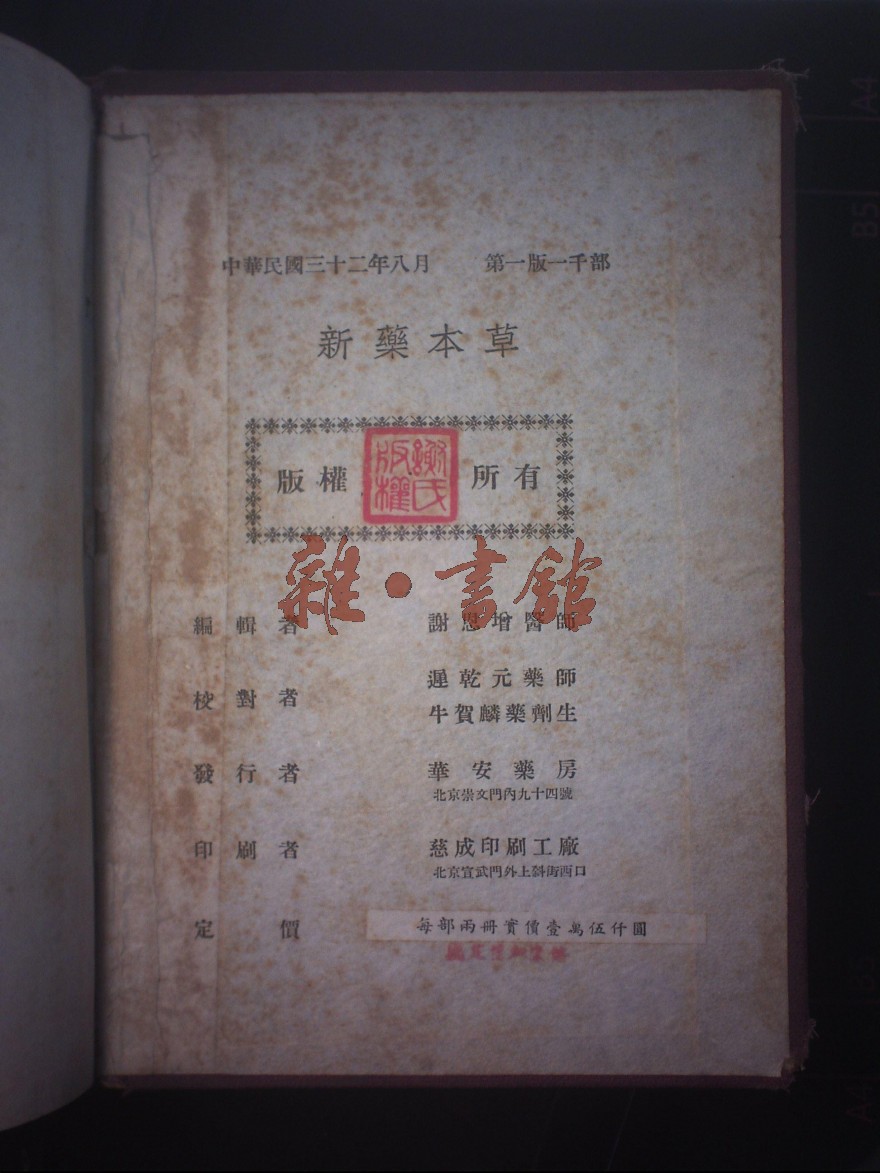 中華民國三十二年八月 第一版一千部
新藥本草
版權所有
謝氏版權
雜·書館
編輯者 謝恩增醫師
校對者 遲乾元藥師
牛賀麟藥劑生
發行者 華安藥房
北京崇文門內九十四號
印刷者 慈成印刷工廠
北京宣武門外上斜街西口
定價 每部兩冊實價壹萬伍仟圓
A4
B5
A4